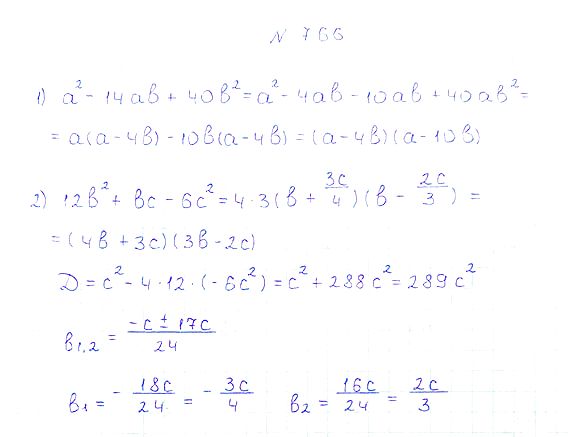 N 766
1) a² - 14ab + 40b² = a² - 4ab - 10ab + 40ab² =
= a(a - 4b) - 10b(a - 4b) = (a - 4b)(a - 10b)
2) 12b² + bc - 6c² = 4·3(b + 3c/4)(b - 2c/3) =
= (4b + 3c)(3b - 2c)
D = c² - 4·12·(-6c²) = c² + 288c² = 289c²
b₁,₂ = (-c ± 17c)/24
b₁ = - 18c/24 = - 3c/4   b₂ = 16c/24 = 2c/3